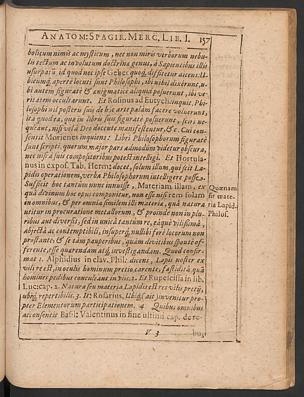 ANATOM: SPAGIR. MERC. LIB. I. 157
bolicum nimis ac mysticum, nec non mirè verborum nebu-
lis tectum ac involutum doctrinæ genus, à Sapientibus illis
usurpatū, id quod nec ipse Geber
bicumq; apertè locuti sunt Philosophi, ibi nihil dixerunt, u-
bi autem figuratè & ænigmaticè aliquid posuerunt, ibi ve-
ritatem occultarunt. Et Rosinus ad Eutychi
losophi
ita quod ea, quæ in libris suis figuratè posuerunt, sciri ne-
queant, nisi vel à Deo docente manifestentur, &c. Cui con-
sentit Morienes inquiens: Libri Philosophorum figuratè
sunt scripti, quorum major pars admodum videtur obscura,
nec nisi à suis compositoribus potest intelligi. Et Hortula-
nus in expos. Tab. Herma docet, solum illum, qui scit La-
pidis operationem, verba Philosophorum intelligere posse.
Sufficit hoc tantum novi innuisse, Materiam illam, ex
quâ divinum hoc opus componitur, non esse nisi rem solam
in omnibus, & per omnia similem illi materiæ, quâ natura
utitur in procreatione metallorum, & proinde non in plu-
ribus aut diversis, sed in unicâ tantum re, eaque vilissimâ,
abjectâ ac contemptibili, insuper, nullibi ferè locorum non
prostante, & se tàm pauperibus, quàm divitibus sponte of-
ferente, esse quærendam atq; investigandam. Quod confir-
mat 1. Alphidius in clav. Phil. dicens, Lapis noster ex
vili re est, in oculis hominum pretio carente, fastiditâ quâ
homines pedibus conculcant in viis. Et Rupecissa in lib.
Luc. cap. 2. Natura seu materia Lapidis est res vilis pretij,
ubiq; repertibilis. 3. It: Rosarius,
per Elementorum participationem. 4. Quibus omnibus
assensentit Basil: Valentinus in fine ultimi cap. de re-
V 3
Quænam
sit mate-
ria Lapid.
Philos.